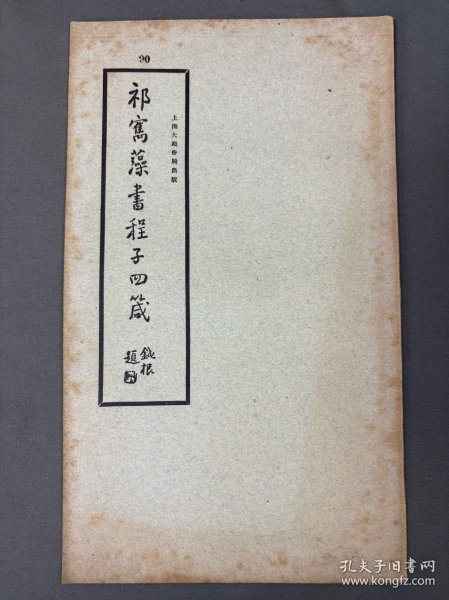 90
上海大眾書局出版
祁寯藻書程子四箴
鐵根
題
孔夫子旧书网
www.kongfz.com